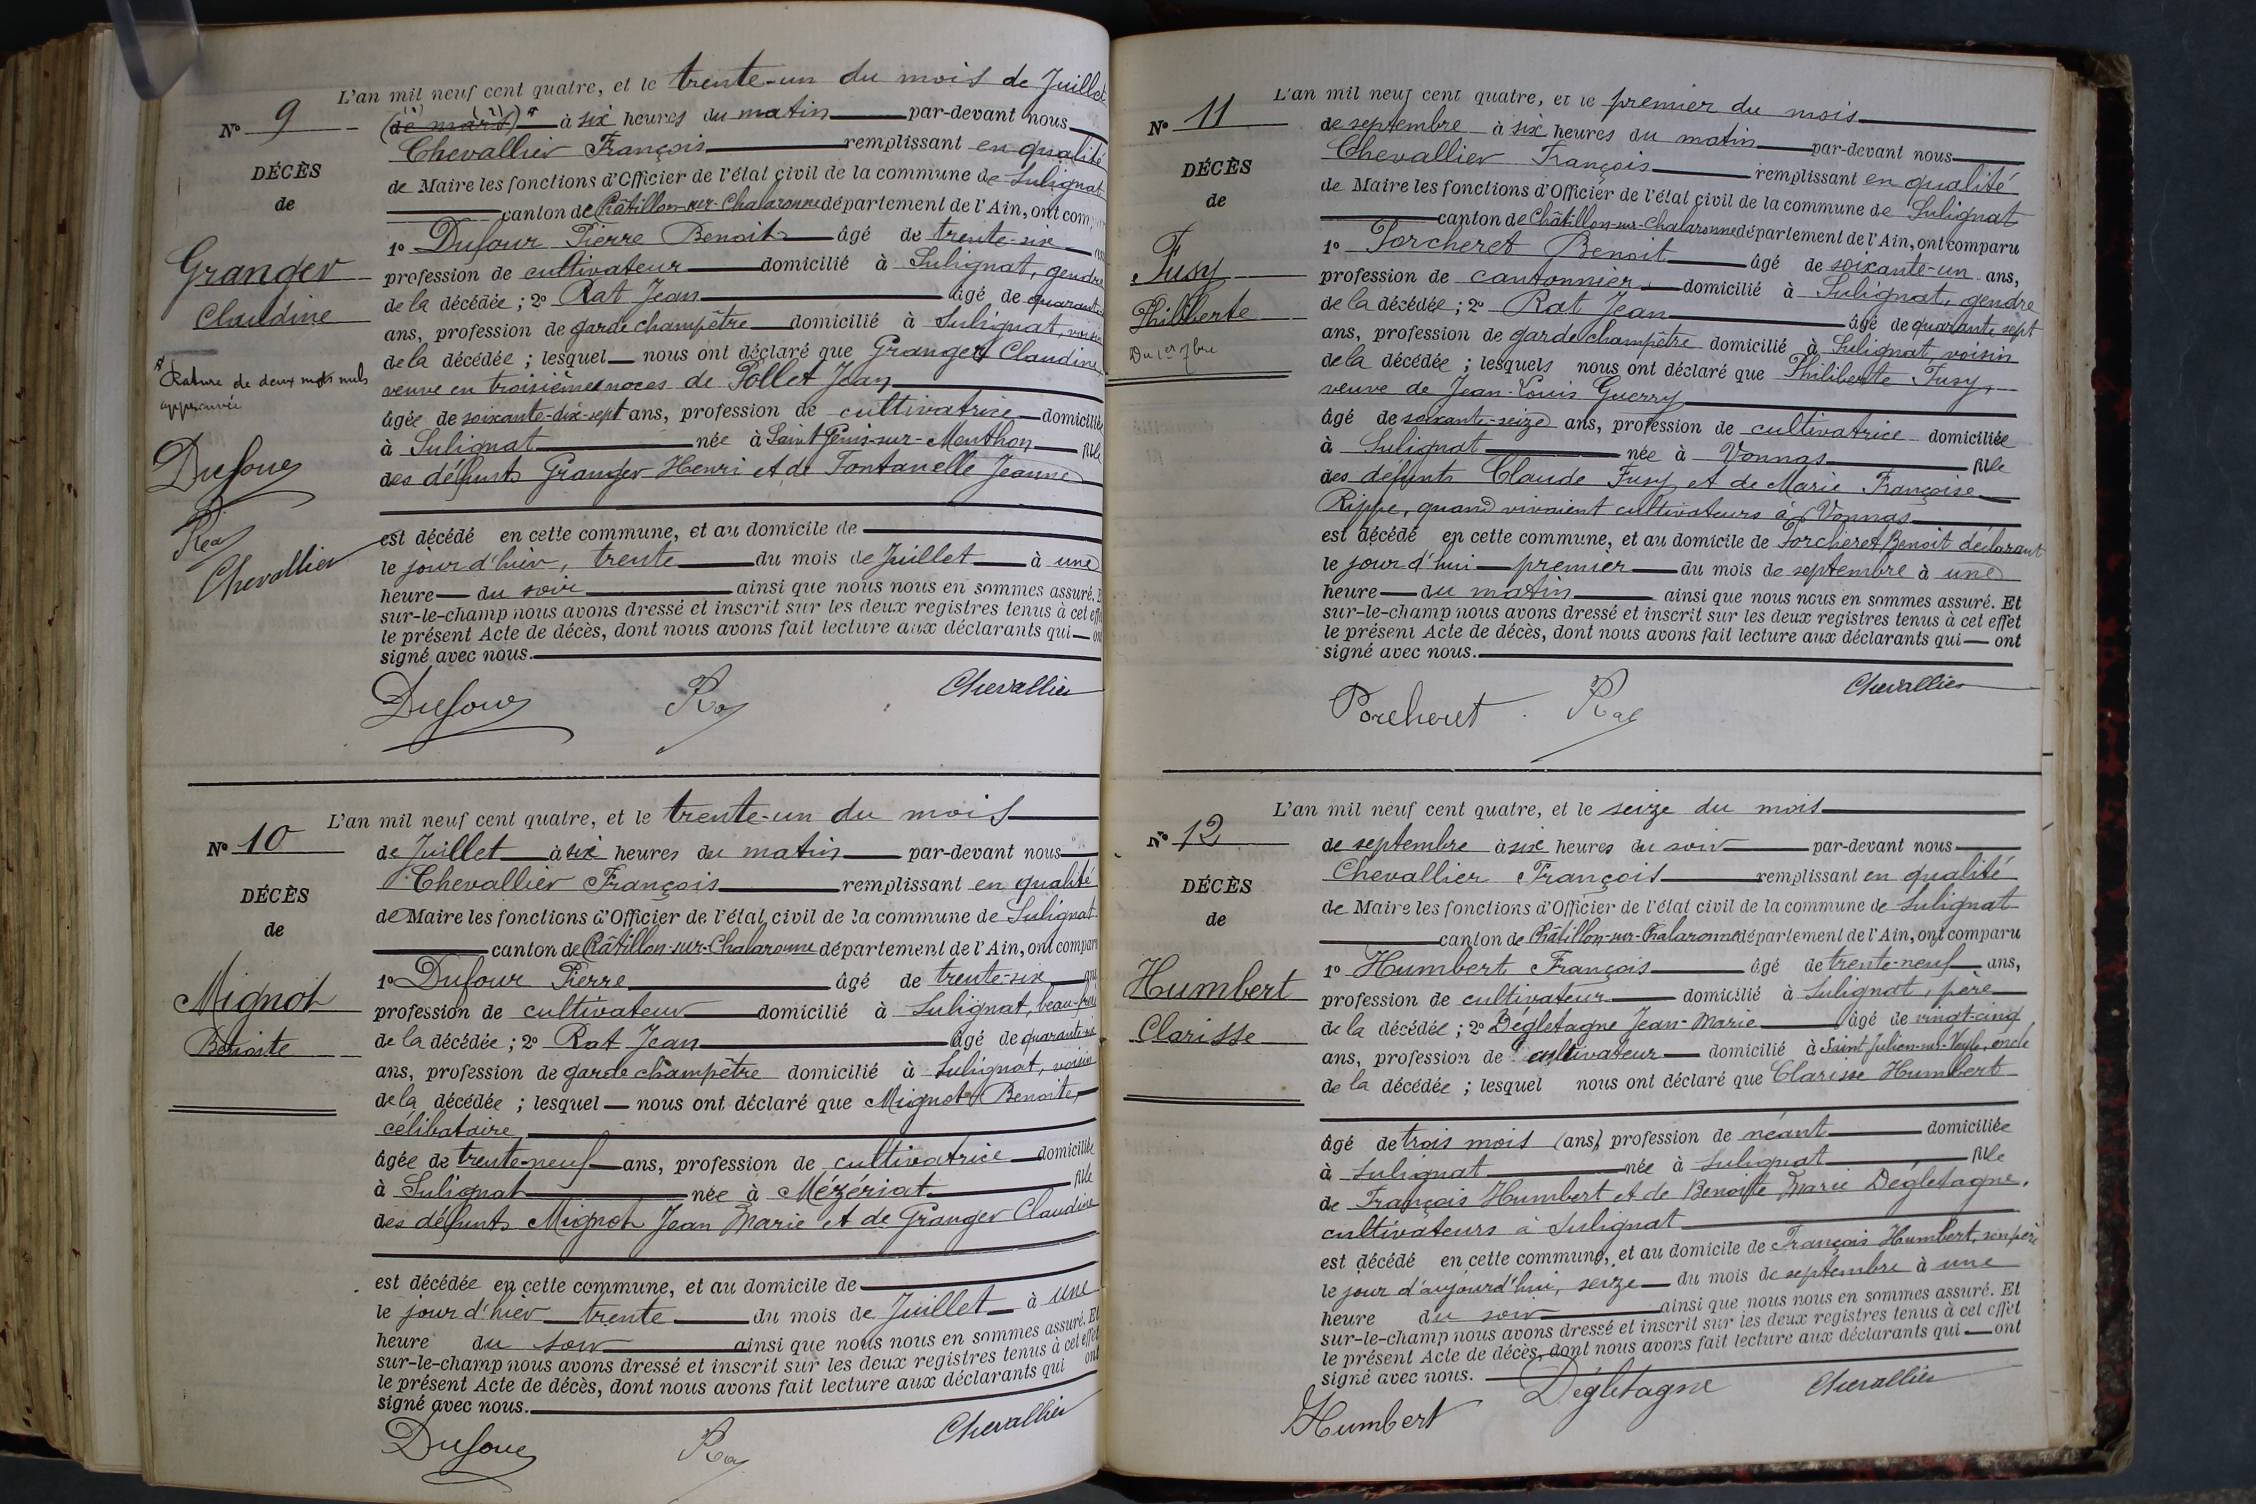 L'an mil neuf cent quatre, et le trente-un du mois de Juillet
N° 9
(de mars) à six heures du matin par-devant nous
Chevallier François remplissant en qualité
DÉCÈS
de Maire les fonctions d'Officier de l'état civil de la commune de Sulignat
de
canton de Châtillon-sur-Chalaronne département de l'Ain, ont
1° Dufour Pierre Benoit âgé de trente-six
Granger
profession de cultivateur domicilié à Sulignat, gendre
Claudine
de la décédée ; 2° Rat Jean âgé de
ans, profession de garde champêtre domicilié à Sulignat, voisin
de la décédée ; lesquel nous ont déclaré que Granger Claudine
Rature de deux mots nuls
approuvée
veuve en troisièmes noces de Pollet Jean
âgée de soixante-dix-sept ans, profession de cultivatrice domiciliée
à Sulignat née à Saint Genis-sur-Menthon fille
Dufour
des défunts Granger Henri et de Fontanelle Jeanne
Rat
est décédé en cette commune, et au domicile de
Chevallier
le jour d'hier, trente du mois de Juillet à une
heure du soir ainsi que nous nous en sommes assuré.
sur-le-champ nous avons dressé et inscrit sur les deux registres tenus à cet
le présent Acte de décès, dont nous avons fait lecture aux déclarants qui
signé avec nous.
Dufour Rat Chevallier
L'an mil neuf cent quatre, et le trente-un du mois
N° 10
de Juillet à six heures du matin par-devant nous
Chevallier François remplissant en qualité
DÉCÈS
de Maire les fonctions d'Officier de l'état civil de la commune de Sulignat
de
canton de Châtillon-sur-Chalaronne département de l'Ain, ont comparu
1° Dufour Pierre âgé de trente-six
Mignot
profession de cultivateur domicilié à Sulignat,
Benoite
de la décédée ; 2° Rat Jean âgé de
ans, profession de garde champêtre domicilié à Sulignat, voisin
de la décédée ; lesquel nous ont déclaré que Mignot Benoite,
célibataire
âgée de trente-neuf ans, profession de cultivatrice domiciliée
à Sulignat née à Mézériat fille
des défunts Mignot Jean Marie et de Granger Claudine
est décédée en cette commune, et au domicile de
le jour d'hier trente du mois de Juillet à une
heure du soir ainsi que nous nous en sommes assuré. Et
sur-le-champ nous avons dressé et inscrit sur les deux registres tenus à cet effet
le présent Acte de décès, dont nous avons fait lecture aux déclarants qui ont
signé avec nous.
Dufour Rat Chevallier
L'an mil neuf cent quatre, et le premier du mois
N° 11
de septembre à six heures du matin par-devant nous
Chevallier François remplissant en qualité
DÉCÈS
de Maire les fonctions d'Officier de l'état civil de la commune de Sulignat
de
canton de Châtillon-sur-Chalaronne département de l'Ain, ont comparu
1° Porcheret Benoit âgé de soixante-un ans,
Fusy
profession de cantonnier domicilié à Sulignat, gendre
Philiberte
de la décédée ; 2° Rat Jean âgé de quarante sept
Du 1er 7bre
ans, profession de garde champêtre domicilié à Sulignat, voisin
de la décédée ; lesquels nous ont déclaré que Philiberte Fusy,
veuve de Jean-Louis Guerry
âgé de soixante-seize ans, profession de cultivatrice domiciliée
à Sulignat née à Vonnas fille
des défunts Claude Fusy et de Marie Françoise
Rippe, quand vivaient cultivateurs à Vonnas
est décédé en cette commune, et au domicile de Porcheret Benoit déclarant
le jour d'hui premier du mois de septembre à une
heure du matin ainsi que nous nous en sommes assuré. Et
sur-le-champ nous avons dressé et inscrit sur les deux registres tenus à cet effet
le présent Acte de décès, dont nous avons fait lecture aux déclarants qui ont
signé avec nous.
Porcheret Rat Chevallier
L'an mil neuf cent quatre, et le seize du mois
N° 12
de septembre à six heures du soir par-devant nous
Chevallier François remplissant en qualité
DÉCÈS
de Maire les fonctions d'Officier de l'état civil de la commune de Sulignat
de
canton de Châtillon-sur-Chalaronne département de l'Ain, ont comparu
1° Humbert François âgé de trente-neuf ans,
Humbert
profession de cultivateur domicilié à Sulignat, père
Clarisse
de la décédée ; 2° Dégletagne Jean-Marie âgé de vingt-cinq
ans, profession de cultivateur domicilié à Saint Julien-sur-Veyle, oncle
de la décédée ; lesquel nous ont déclaré que Clarisse Humbert
âgé de trois mois (ans), profession de néant domiciliée
à Sulignat née à Sulignat fille
de François Humbert et de Benoite Marie Dégletagne,
cultivateurs à Sulignat
est décédé en cette commune, et au domicile de François Humbert, son père
le jour d'aujourd'hui, seize du mois de septembre à une
heure du soir ainsi que nous nous en sommes assuré. Et
sur-le-champ nous avons dressé et inscrit sur les deux registres tenus à cet effet
le présent Acte de décès, dont nous avons fait lecture aux déclarants qui ont
signé avec nous.
Humbert Dégletagne Chevallier